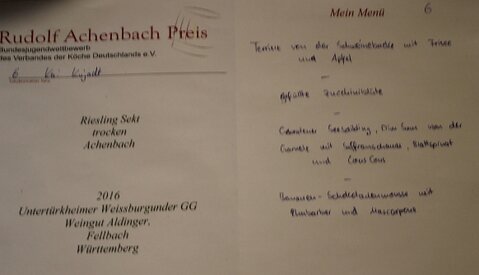 Rudolf Achenbach Preis
Bundesjugendwettbewerb
des Verbandes der Köche Deutschlands e.V.
6
Riesling Sekt
trocken
Achenbach
2016
Untertürkheimer Weissburgunder GG
Weingut Aldinger,
Fellbach
Württemberg
Mein Menü
6
Terrine von der Schweinebacke mit Frisee
und Apfel
–
–
Gebratener Seesaibling, Dim Sum von der
Garnele mit Safranschaum, Blattspinat
und Cous Cous
–
Bananen-Schokoladenmousse mit
Rhabarber und Mascarpone